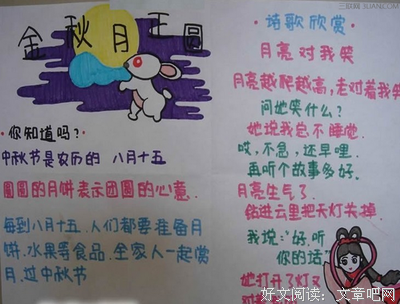 三联网 3LIAN.COM
金秋月正圆
·你知道吗?·
中秋节是农历的 八月十五
圆圆的月饼表示团圆的心意.
每到八月十五.人们都要准备月
饼.水果等食品.全家人一起赏
月.过中秋节
·诗歌欣赏
月亮对我笑
月亮越爬越高,老对着我笑
问她笑什么?
她说我总不睡觉.
哎,不急,还早哩.
再听个故事多好.
月亮生气了.
钻进云里把天灯关掉.
我说:"好.听
你的话
她打开了灯又
对
好文阅读:文章吧网